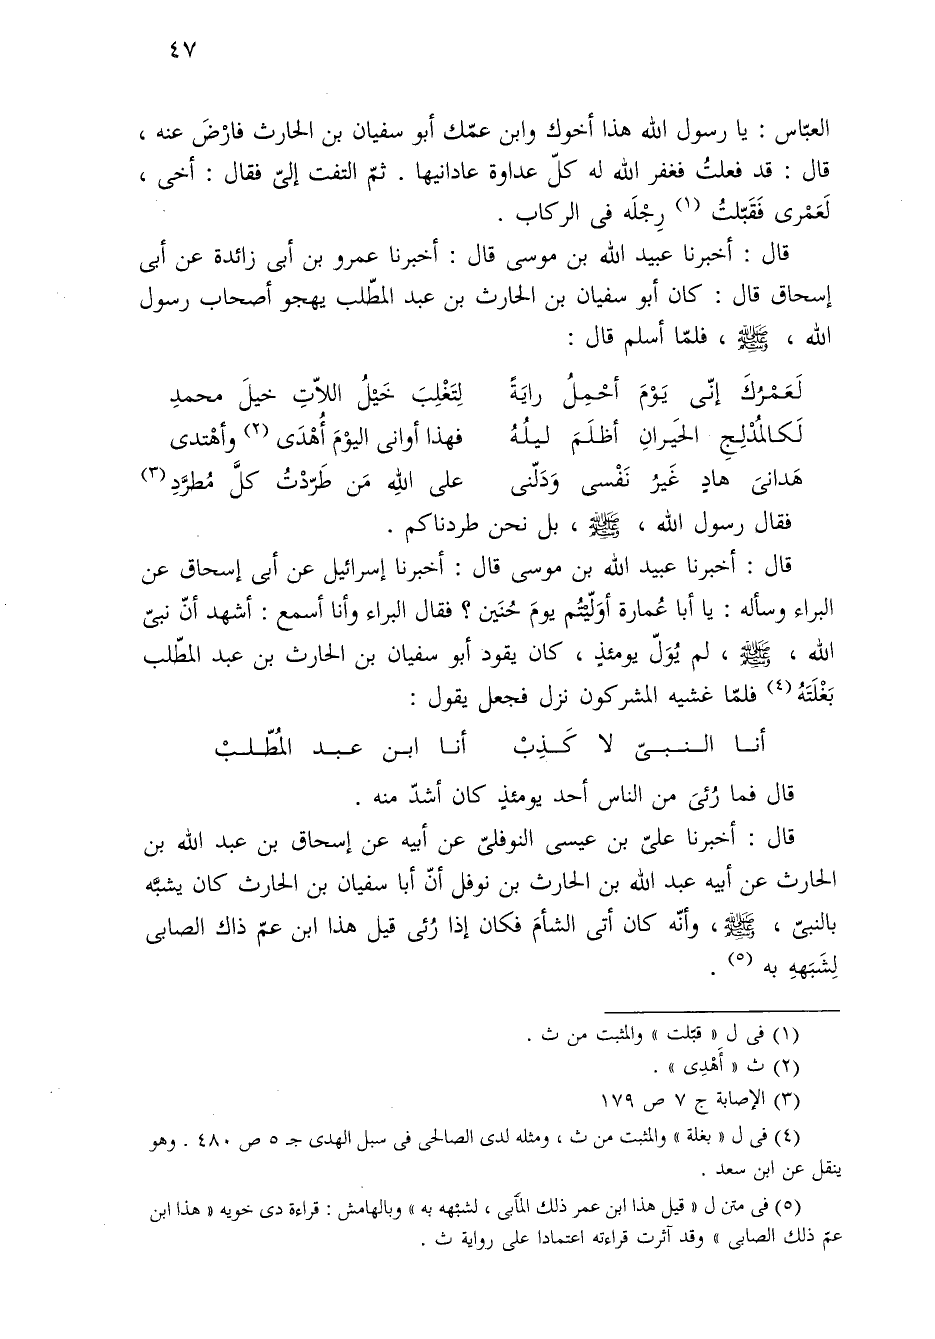 ٤٧
العبّاس : يا رسول الله هذا أخوك وابن عمّك أبو سفيان بن الحارث فارْضَ عنه ،
قال : قد فعلتُ فغفر الله له كلّ عداوة عادانيها . ثمّ التفت إلىّ فقال : أخى ،
لَعَمْرى فَقَبّلتُ (١) رِجْلَه فى الركاب .
قال : أخبرنا عبيد الله بن موسى قال : أخبرنا عمرو بن أبى زائدة عن أبى
إسحاق قال : كان أبو سفيان بن الحارث بن عبد المطّلب يهجو أصحاب رسول
الله ، ﷺ ، فلمّا أسلم قال :
لَعَمْرُكَ إنّى يَوْمَ أحْمِلُ رايَةً لِتَغْلِبَ خَيْلُ اللاّتِ خيلَ محمدِ
لَكالمُدْلِجِ الحَيرانِ أظْلَمَ ليلُهُ فهذا أوانى اليوْمَ أُهْدَى (٢) وأهْتدى
هَدانىَ هادٍ غَيرُ نَفْسى وَدَلّنى على اللهِ مَن طَرّدْتُ كلَّ مُطرَّدِ (٣)
فقال رسول الله ، ﷺ ، بل نحن طردناكم .
قال : أخبرنا عبيد الله بن موسى قال : أخبرنا إسرائيل عن أبى إسحاق عن
البراء وسأله : يا أبا عُمارة أوَلّيتُم يومَ حُنَين ؟ فقال البراء وأنا أسمع : أشهد أنّ نبىّ
الله ، ﷺ ، لم يُوَلّ يومئذٍ ، كان يقود أبو سفيان بن الحارث بن عبد المطّلب
بَغْلَتَهُ (٤) فلمّا غشيه المشركون نزل فجعل يقول :
أنـا الـنـبـىّ لا كَـذِبْ أنـا ابـن عـبـد المُطّـلـبْ
قال فما رُئىَ من الناس أحد يومئذٍ كان أشدّ منه .
قال : أخبرنا علىّ بن عيسى النوفلىّ عن أبيه عن إسحاق بن عبد الله بن
الحارث عن أبيه عبد الله بن الحارث بن نوفل أنّ أبا سفيان بن الحارث كان يشبَّه
بالنبىّ ، ﷺ ، وأنّه كان أتى الشأمَ فكان إذا رُئى قيل هذا ابن عمّ ذاك الصابى
لِشَبَههِ به (٥) .
(١) فى ل « قبّلت » والمثبت من ث .
(٢) ث « أَهْدِى » .
(٣) الإصابة ج ٧ ص ١٧٩
(٤) فى ل « بغلة » والمثبت من ث ، ومثله لدى الصالحى فى سبل الهدى جـ ٥ ص ٤٨٠ . وهو
ينقل عن ابن سعد .
(٥) فى متن ل « قيل هذا ابن عمر ذلك المأبى ، لشبْهه به » وبالهامش : قراءة دى خويه « هذا ابن
عمّ ذلك الصابى » وقد آثرت قراءته اعتمادا على رواية ث .